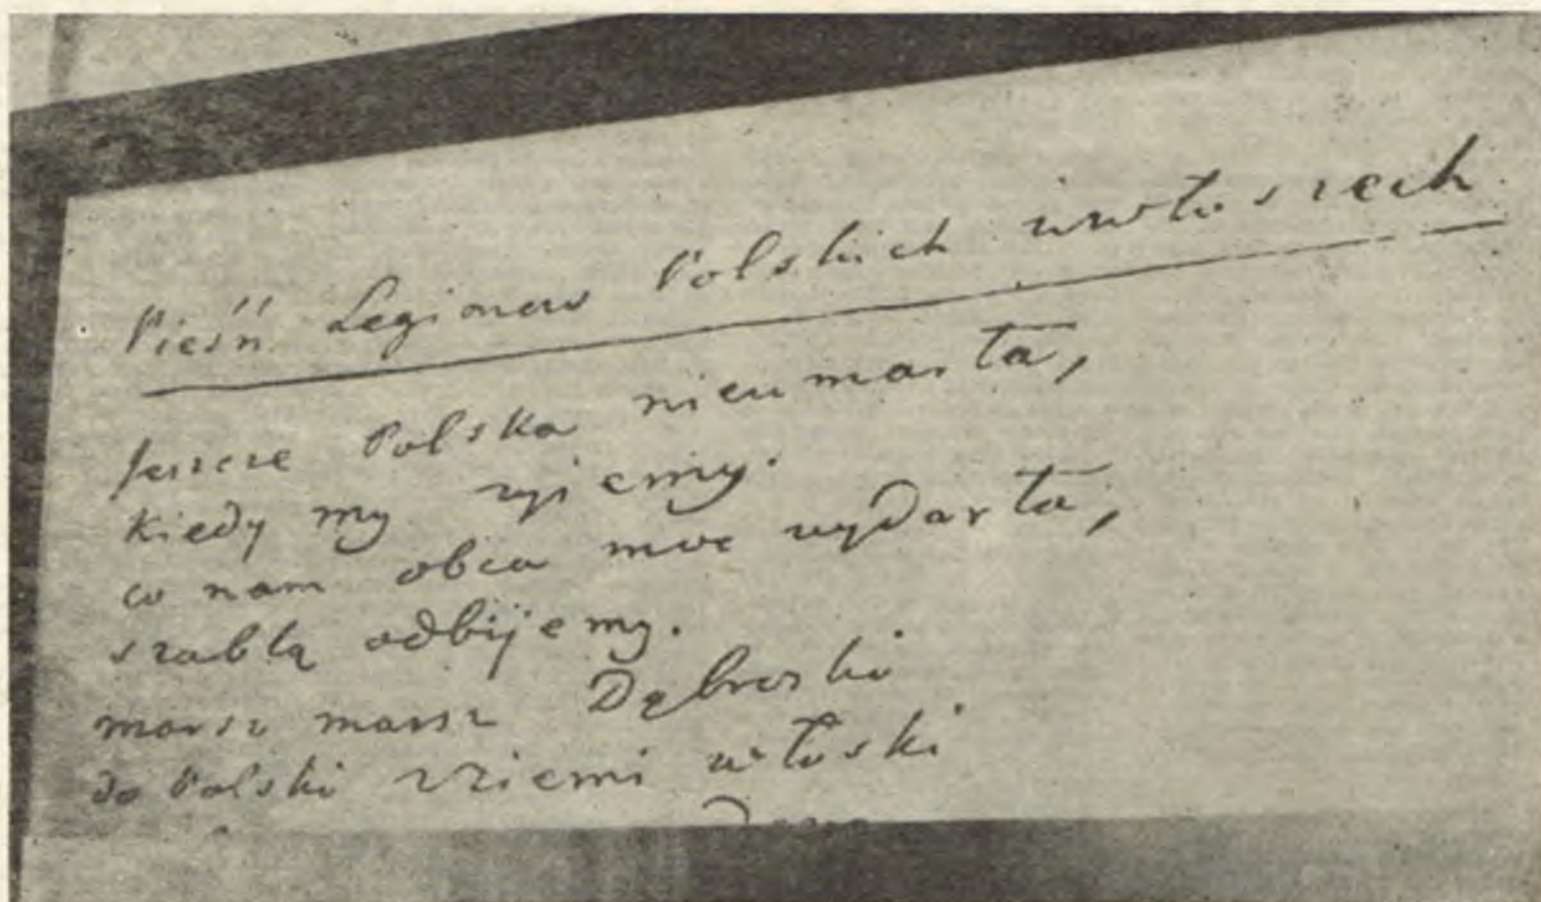 Pieśń Legionow Polskich wewłoszech
Jeszcze Polska nieumarła,
kiedy my zyiemy.
co nam obca moc wydarła,
szablą odbijemy.
marsz marsz Dąbroski
do Polski zZiemi włoski